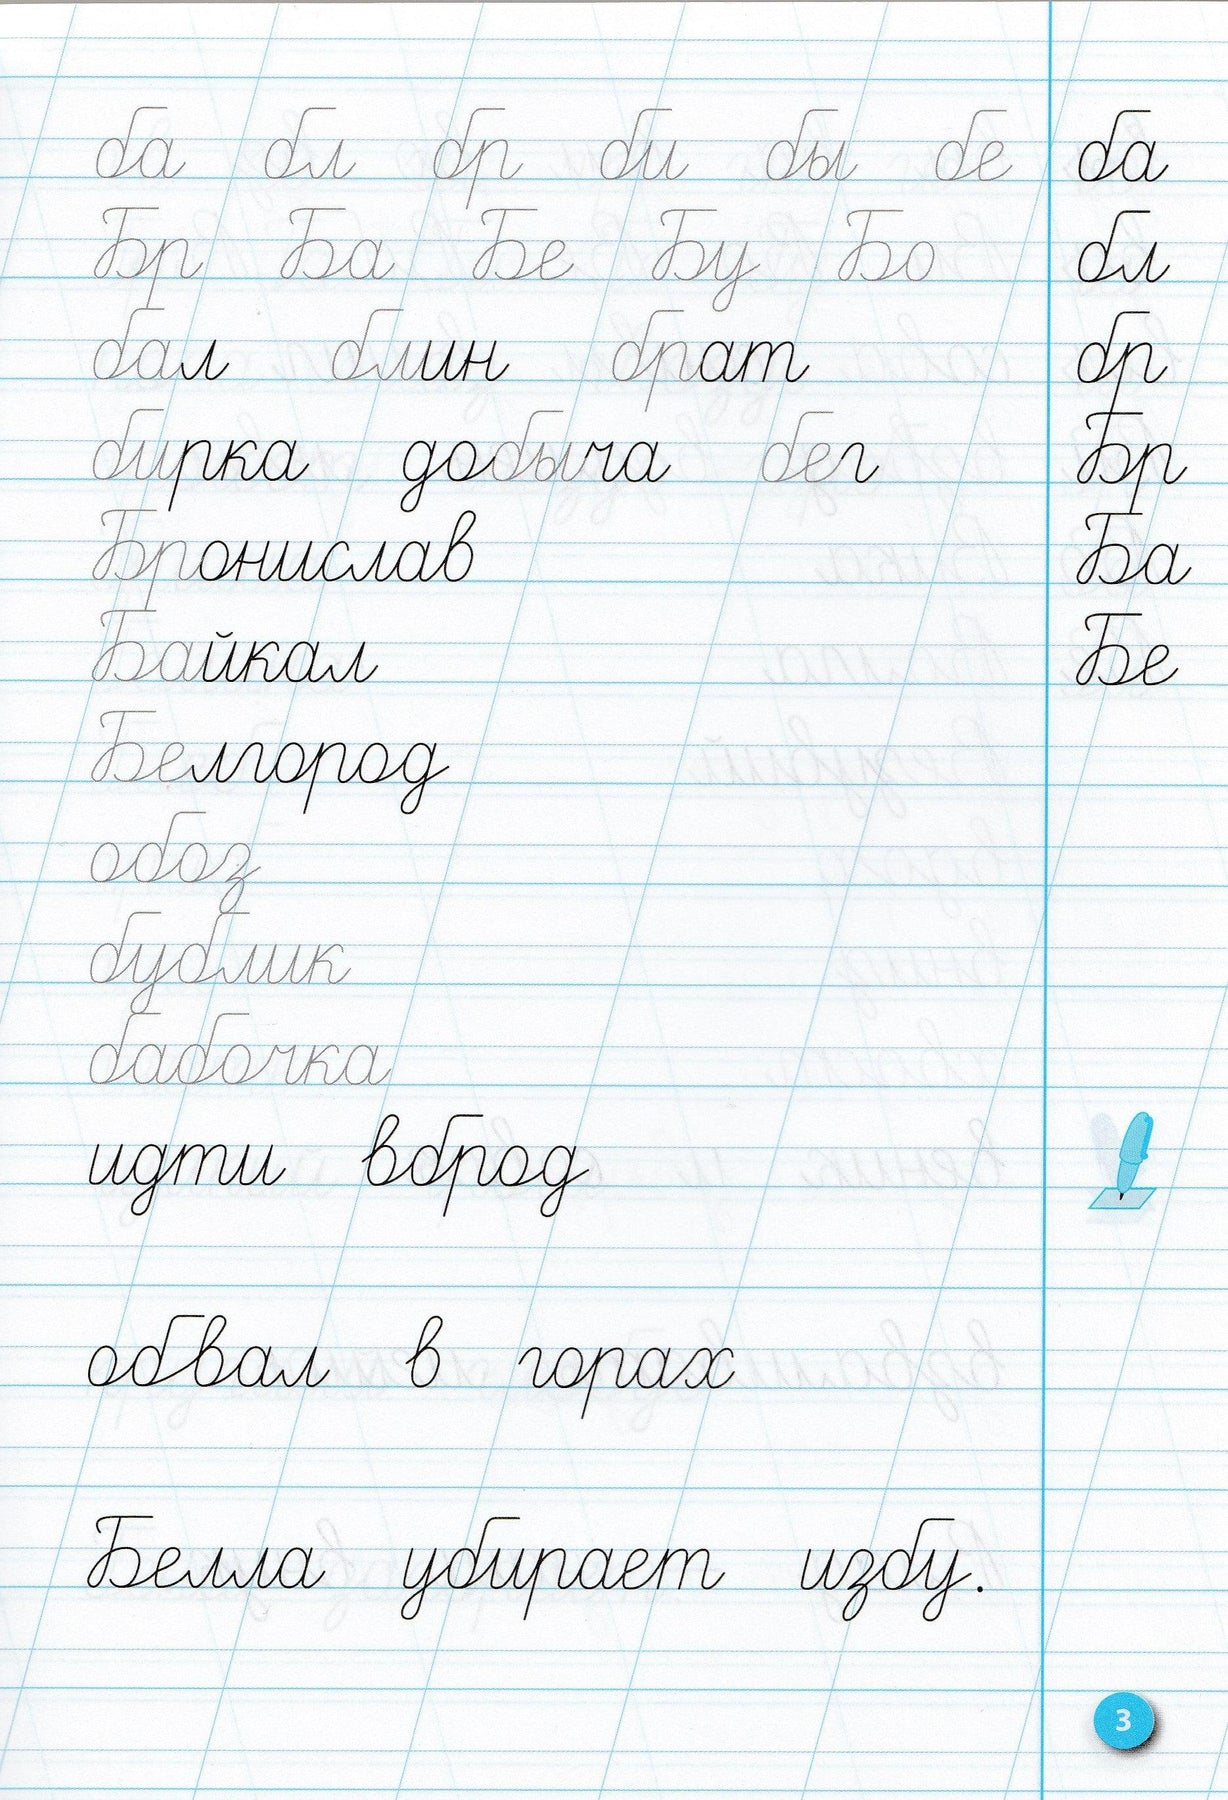 ба бл бр би бы бе ба
Бр Ба Бе Бу Бо бл
бал блин брат бр
бирка добыча бег Бр
Бронислав Ба
Байкал Бе
Белгород
обоз
бублик
бабочка
идти вброд
обвал в горах
Белла убирает избу.
3